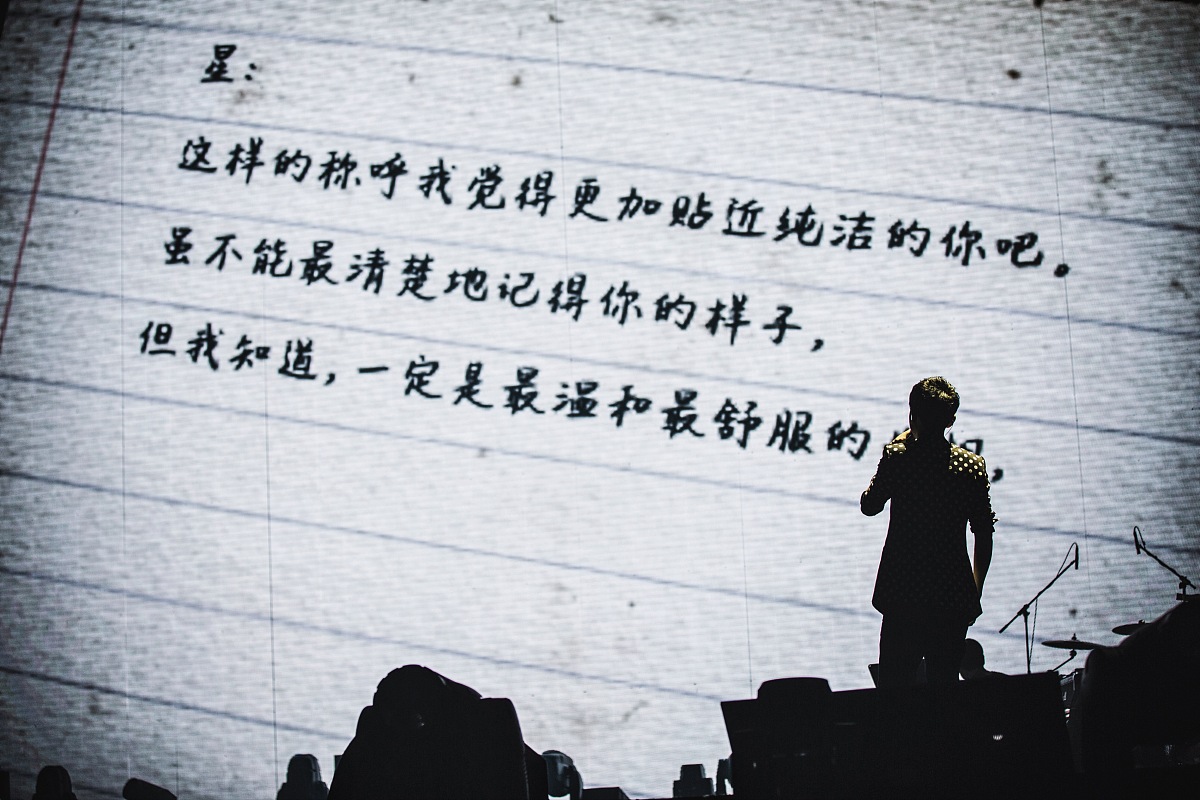 星：
这样的称呼我觉得更加贴近纯洁的你吧。
虽不能最清楚地记得你的样子，
但我知道，一定是最温和最舒服的，